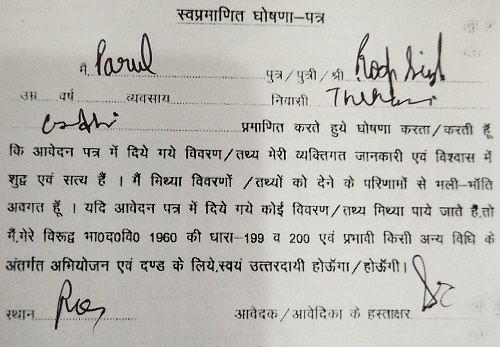 स्वप्रमाणित घोषणा-पत्र
मैं Parul पुत्र/पुत्री/श्री Roop Singh
उम्र वर्ष व्यवसाय निवासी
प्रमाणित करते हुये घोषणा करता/करती हूँ
कि आवेदन पत्र में दिये गये विवरण/तथ्य मेरी व्यक्तिगत जानकारी एवं विश्वास में
शुद्व एवं सत्य हैं । मैं मिथ्या विवरणों /तथ्यों को देने के परिणामों से भली-भॉति
अवगत हूँ । यदि आवेदन पत्र में दिये गये कोई विवरण/तथ्य मिथ्या पाये जाते हैं,तो
मैं,मेरे विरूद्व भा0द0वि0 1960 की धारा-199 व 200 एवं प्रभावी किसी अन्य विधि के
अंतर्गत अभियोजन एवं दण्ड के लिये,स्वयं उत्तरदायी होऊँगा/होऊँगी।
स्थान आवेदक/आवेदिका के हस्ताक्षर